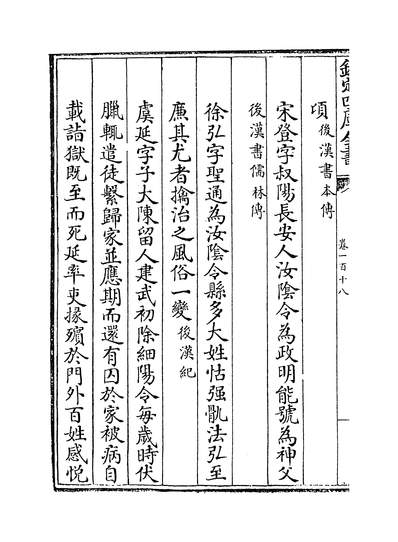 欽定四庫全書
卷一百十八
頃後漢書本傳
宋登字叔陽長安人汝陰令為政明能號為神父
後漢書儒林傳
徐弘字聖通為汝陰令縣多大姓怙强骩法弘至
廉其尤者擒治之風俗一變後漢紀
虞延字子大陳留人建武初除細陽令每歲時伏
臘輒遣徒繫歸家並應期而還有囚於家被病自
載詣獄既至而死延率吏掾殯於門外百姓感悦